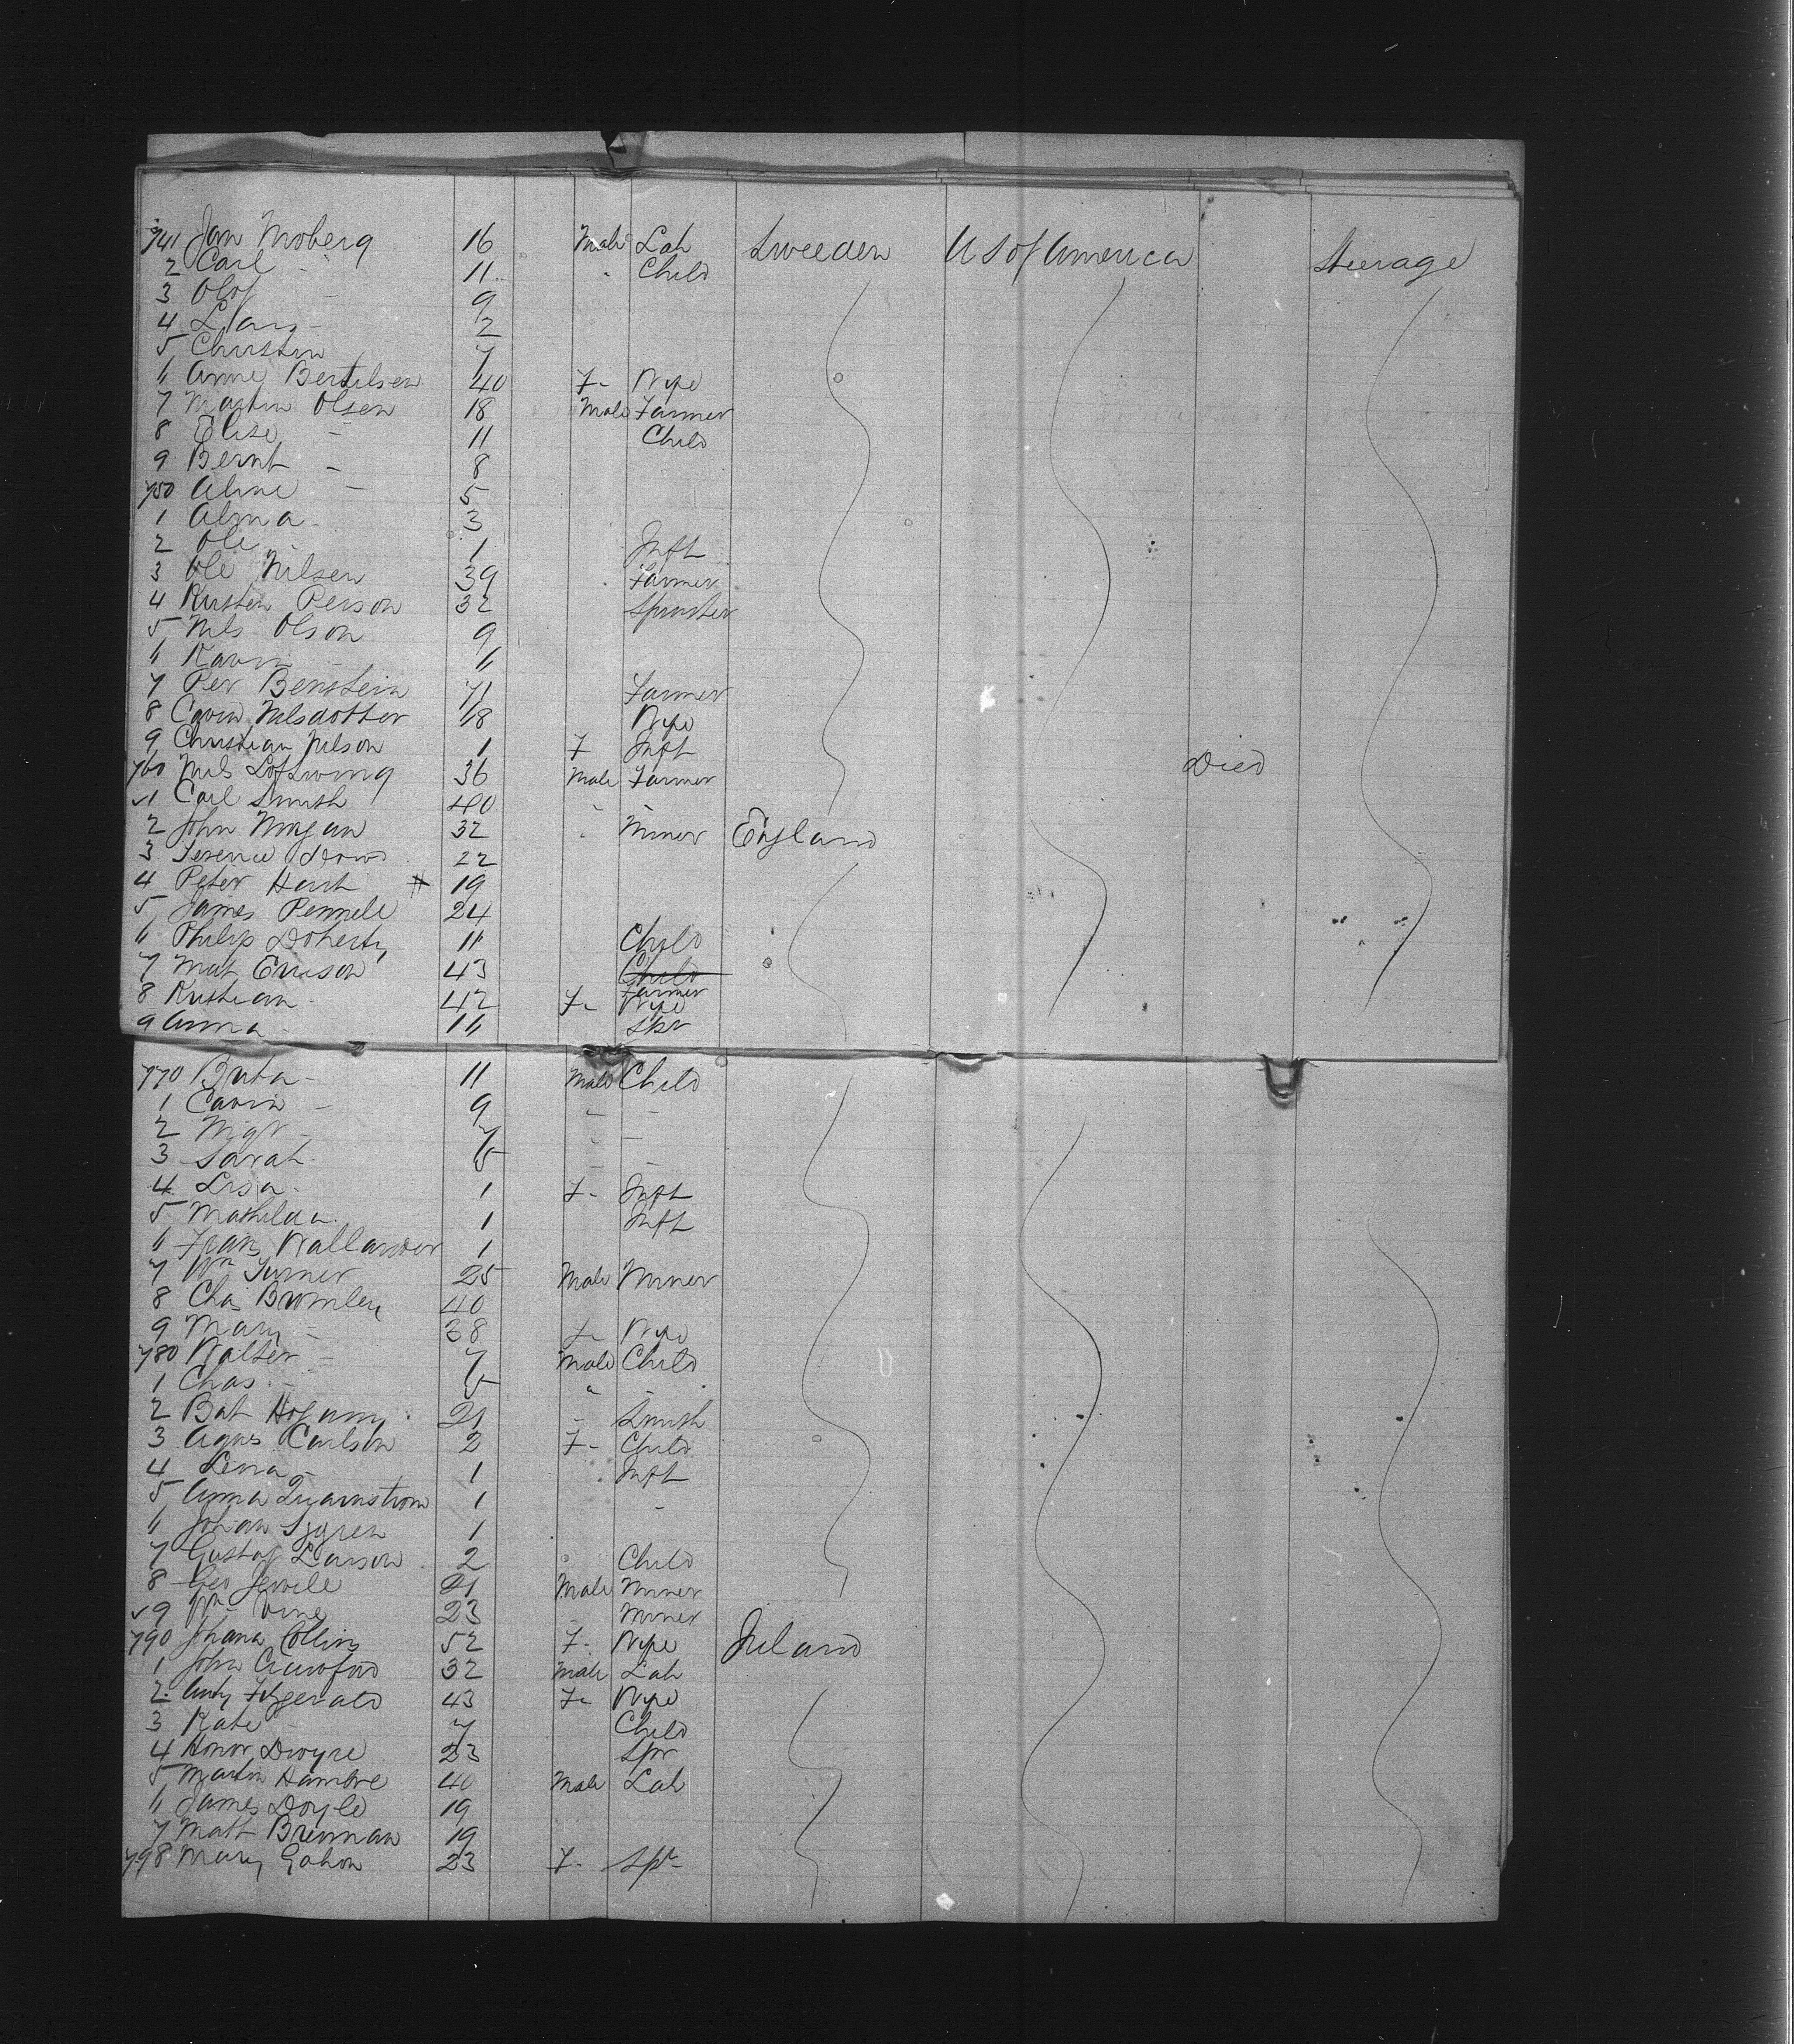 741 Jan Moberg 16 Male Lab Sweeden U S of America Steerage
2 Carl - 11 " Child
3 Olof - 9
4 Lars - 2
5 Christin 7
6 Anne Bertelsen 40 F- Wife
7 Martin Olsen 18 Male Farmer
8 Elise - 11 Child
9 Bernt - 8
750 Aline - 5
1 Alma - 3
2 Ole - 1 Inft
3 Ole Nilsen 39 Farmer
4 Kirsten Person 32 Spinster
5 Nils Olson 9
6 Karin - 6
7 Per Benstein 71 Farmer
8 Carin Nilsdotter 48 Wife
9 Christian Nilson 1 F Inft Died
760 Nils Loftwing 36 Male Farmer
1 Carl Smith 40 " "
2 John Mogan 32 " Miner England
3 Terence 22
4 Peter Hart 19
5 James Pennell 24
6 Philip Doherty 11 Child
7 Mat Ericson 43 Child Farmer
8 Kristian - 42 F- Wife
9 Anna - 16 Spr
770 Brita - 11 Male Child
1 Carin - 9 " -
2 - 7 " -
3 Sarah - 5 - -
4 Lisa - 1 F- Inft
5 Mathilda - 1 Inft
6 Frans Wallander 1
7 Wm Turner 25 Male Miner
8 Chas Bromley 40
9 Mary - 38 F- Wife
780 Walter - 7 Male Child
1 Chas - 5 " -
2 Bat Hogamy 21 - Smith
3 Agnes Carlson 2 F- Child
4 Lena - 1 Inft
5 Anna Quarnstrom 1 -
6 Johan 1
7 Gustaf Larson 2 Child
8 Geo 21 Male Miner
9 Wm Vine 23 Miner
790 Johana Collins 52 F- Wife Ireland
1 John Crawford 32 Male Lab
2 Fitzgerald 43 F- Wife
3 Kate - 7 Child
4 Honor Dwyre 23 Spr
5 Martin 40 Male Lab
6 James Doyle 19
7 Matt Brennan 19
798 Mary Gahon 23 F- Spr